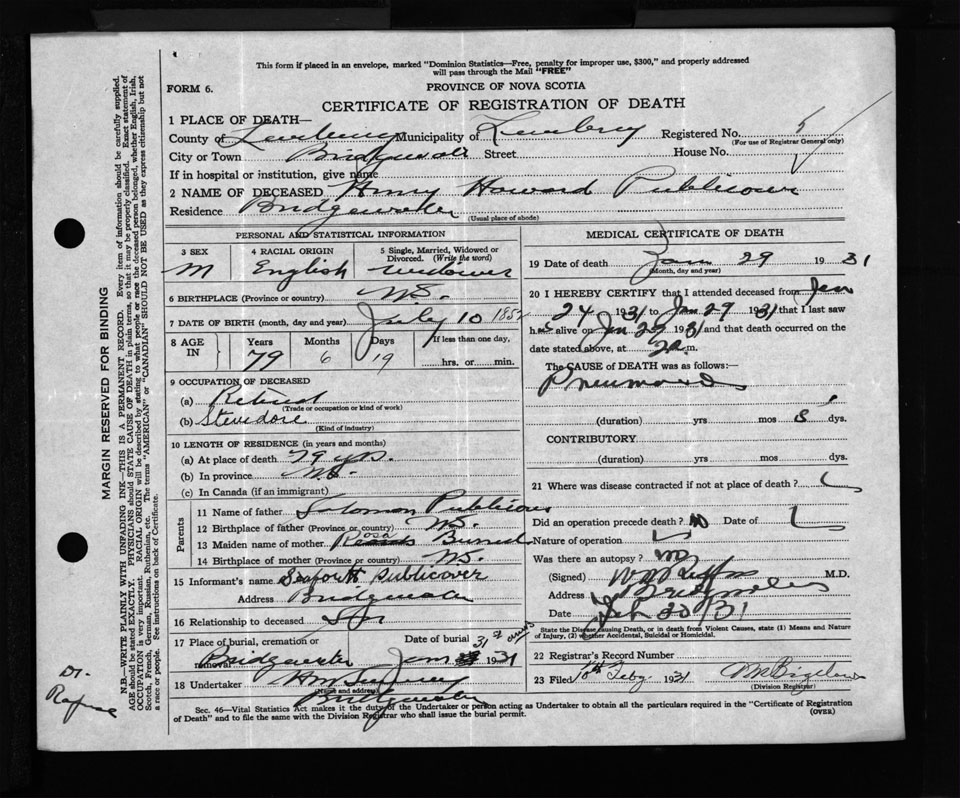 This form if placed in an envelope, marked "Dominion Statistics—Free, penalty for improper use, $300," and properly addressed
will pass through the Mail "FREE"
FORM 6.
PROVINCE OF NOVA SCOTIA
CERTIFICATE OF REGISTRATION OF DEATH
1 PLACE OF DEATH—
County of Lunenburg Municipality of Lunenburg Registered No. 5
(For use of Registrar General only)
City or Town Bridgewater Street House No.
If in hospital or institution, give name
2 NAME OF DECEASED Henry Howard Publicover
Residence Bridgewater
(Usual place of abode)
PERSONAL AND STATISTICAL INFORMATION
3 SEX 4 RACIAL ORIGIN 5 Single, Married, Widowed or Divorced. (Write the word)
M English widower
6 BIRTHPLACE (Province or country) N.S.
7 DATE OF BIRTH (month, day and year) July 10 185
8 AGE IN Years Months Days If less than one day,
79 6 19 hrs. or min.
9 OCCUPATION OF DECEASED
(a) Retired
(Trade or occupation or kind of work)
(b) Stevedore
(Kind of industry)
10 LENGTH OF RESIDENCE (in years and months)
(a) At place of death 79 yrs.
(b) In province N.S.
(c) In Canada (if an immigrant)
Parents
11 Name of father Solomon Publicover
12 Birthplace of father (Province or country) N.S.
13 Maiden name of mother
14 Birthplace of mother (Province or country) N.S.
15 Informant's name Seaforth Publicover
Address Bridgewater
16 Relationship to deceased Son
17 Place of burial, cremation or removal Bridgewater Date of burial Jan 31st 1931
18 Undertaker
(Name and address)
Bridgewater
MEDICAL CERTIFICATE OF DEATH
19 Date of death Jan 29 1931
(Month, day and year)
20 I HEREBY CERTIFY that I attended deceased from Jan
24 1931 to Jan 29 1931 that I last saw
h alive on Jan 29 1931 and that death occurred on
date stated above, at 2 a.m.
The CAUSE of DEATH was as follows:—
Pneumonia
(duration) yrs mos 5 dys.
CONTRIBUTORY
(duration) yrs mos dys.
21 Where was disease contracted if not at place of death?
Did an operation precede death? no Date of
Nature of operation
Was there an autopsy? no
(Signed) M.D.
Address Bridgewater
Date Feb 31
State the Disease causing Death, or in death from Violent Causes, state (1) Means and Nature
of Injury, (2) whether Accidental, Suicidal or Homicidal.
22 Registrar's Record Number
23 Filed 10th Feby. 1931 Bigelow
(Division Registrar)
Sec. 46—Vital Statistics Act makes it the duty of the Undertaker or person acting as Undertaker to obtain all the particulars required in the "Certificate of Registration
of Death" and to file the same with the Division Registrar who shall issue the burial permit.
(OVER)
MARGIN RESERVED FOR BINDING
N.B.—WRITE PLAINLY WITH UNFADING INK—THIS IS A PERMANENT RECORD. Every item of information should be carefully supplied.
AGE should be stated EXACTLY. PHYSICIANS should STATE CAUSE OF DEATH in plain terms, so that it may be properly classified. Exact statement of
OCCUPATION is very important. RACIAL ORIGIN will be described by stating to what people or race the deceased person belonged, whether English, Irish,
Scotch, French, German, Russian, Ruthenian, etc. The terms "AMERICAN" or "CANADIAN" SHOULD NOT BE USED as they express citizenship but not
a race or people. See instructions on back of Certificate.
Dr.